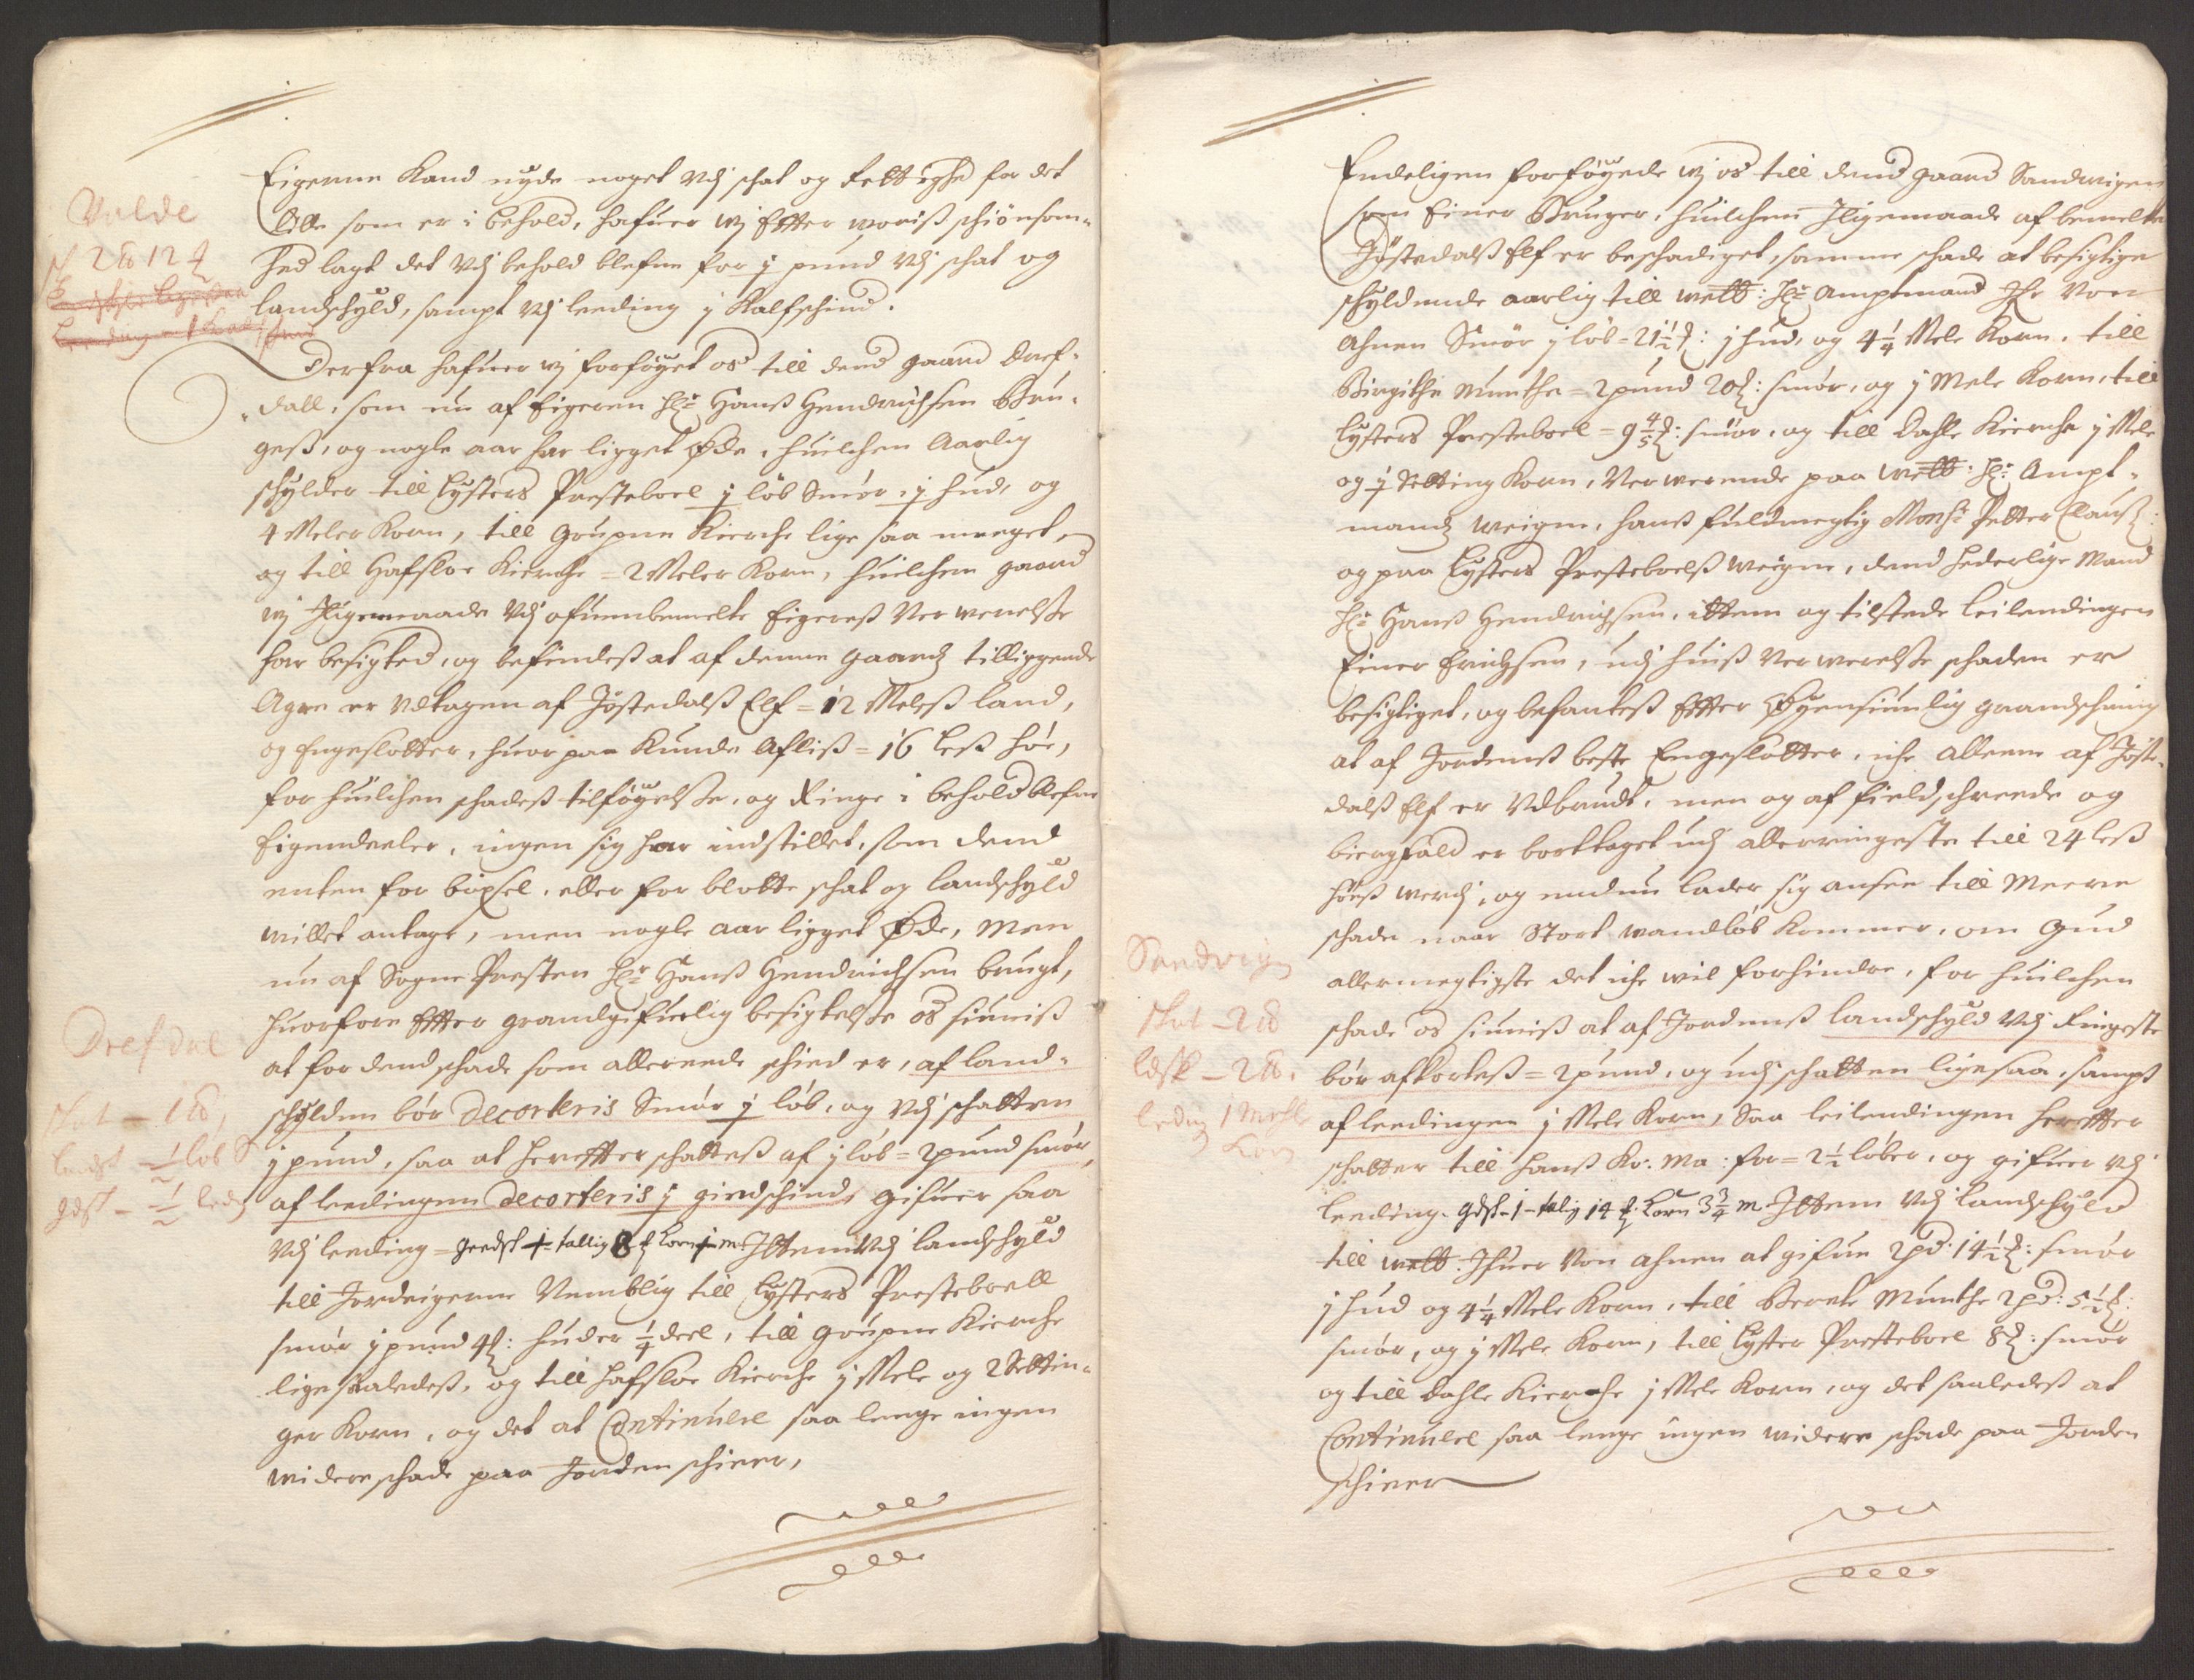 Eigerne Kand nyde noget udj schat og Rettighed for det
lille som er i behold, hafuer wj Effter woriß schiønsom-
hed lagt det udj behold blefne for j pund udj schat og
landschyld, sampt udj leeding j Kalfschind.
Derfra hafuer wj forføyet os till dend gaard Dref-
dall, som nu af Eigeren Hr: Hanß Hendrichsen Bru-
geß, og nogle aar har ligget Øde, huilchen Aarlig
schylder till Lysters Presteboel j løb Smør, j hud, og
4 Meler Korn, till Goupne Kierche lige saa meeget,
og till Hafsloe Kierche = 2 Meler Korn, huilchen gaard
wj Iligemaade udj ofuenbemelte Eigereß Verwerelße
har besigted, og befindeß at af denne gaardß tilliggende
Agre er udtagen af Jostedalß Elf = 12 Meleß land,
og Engeslotter, huor paa Kunde Afliß = 16 leß høe,
for huilchen schadeß tilføyelße, og Ringe i behold blefne
Eigendeeler, ingen sig har indstillet, som dend
enten for bøxsel, eller for blotte schat og landschyld
willet antage, men nogle aar ligget Øde, Men
nu af Sogne Presten Hr: Hanß Hendrichsen brugt,
huorfore Effter grandgifuelig besigtelße os siuniß
at for dend schade som allereede schied er, af land-
schylden bør decorteris Smør j løb, og udj schatten
j pund, saa at hereffter schatteß af j løb = 2 pund smør,
af leedingen decorteris j giedschind, gifuer saa
udj leeding = geedsk tallig 8 Korn m Ittem udj landschyld
till Jordeigerne Nemblig till Lysters Presteboell
smør j pund 4: huder 1/4 deel, till Goupne Kierche
lige saaledeß, og till Hafsloe Kierche j Mele og 2 Settin-
ger Korn, og det at Continuere saa lenge ingen
widere schade paa Jorden schieer,
Valde
2 12
Drefdal
Skat - 1
landsk - 1/2 løb
gdsk - 1/2
Endeligen forføyede wj os till dend gaard Sandwigen
som Einer Bruger, huilchen Iligemaade af bemelte
Jostedalß Elf er beschadiget, samme schade at besigtige
schyldende aarlig till welb: Hr: Amptmand Ifr Von
Ahnen Smør j løb = 21 1/2: j hud, og 4 1/4 Mele Korn, till
Birgithe Munthe = 2 pund 20: smør, og j Mele Korn, till
Lysters Presteboel = 9 4/5: smør, og till Dahle Kierche j Mele
og j Setting Korn, Ver werende paa welb: Hr: Ampt-
mandß weigne, hanß fuldmegtig Monsr: Petter Clauß:
og paa Lysters Presteboelß weigne, dend hederlige Mand
Hr: Hanß Hendrichsen, ittem og tilstede leilendingen
Einer Erichsen, udj huiß Ver werelße schaden er
besigtiget, og befanteß Effter Øyensiunlig grandschning
at af Jordenß beste Engeslotter, iche alleene af Joste-
dalß Elf er Udbrudt, men og af fieldschreede og
biergfald er borttaget udj allerringeste till 24 leß
høeß werdj, og endnu lader sig ansee till Meere
schade naar Stort wandløb Kommer, om Gud
allermegtigste det iche wil forhindre, for huilchen
schade os siuniß at af Jordenß landschyld udj Ringeste
bør afkorteß = 2 pund, og udj schatten ligesaa, sampt
af leedingen j Mele Korn, Saa leilendingen hereffter
schatter till Hanß Ko: Ma: for = 2 1/2 løber, og gifuer udj
leeding. gdsk - 1 - talig 14 Korn 3 3/4 m. Ittem udj landschyld
till welb. Ifuer Von Ahnen at gifue 2 pd: 14 1/2: smør
j hud og 4 1/4 Mele Korn, till Berete Munthe 2 pd: 5 1/2:
smør, og j Mele Korn, till Lyster Presteboel 8: smør
og till Dahle Kierche j Mele Korn, og det saaledeß at
Continuere saa lenge ingen widere schade paa Jorden
schieer
Sandvign
skat - 2
ldsk - 2
leding 1 Mehle
Korn